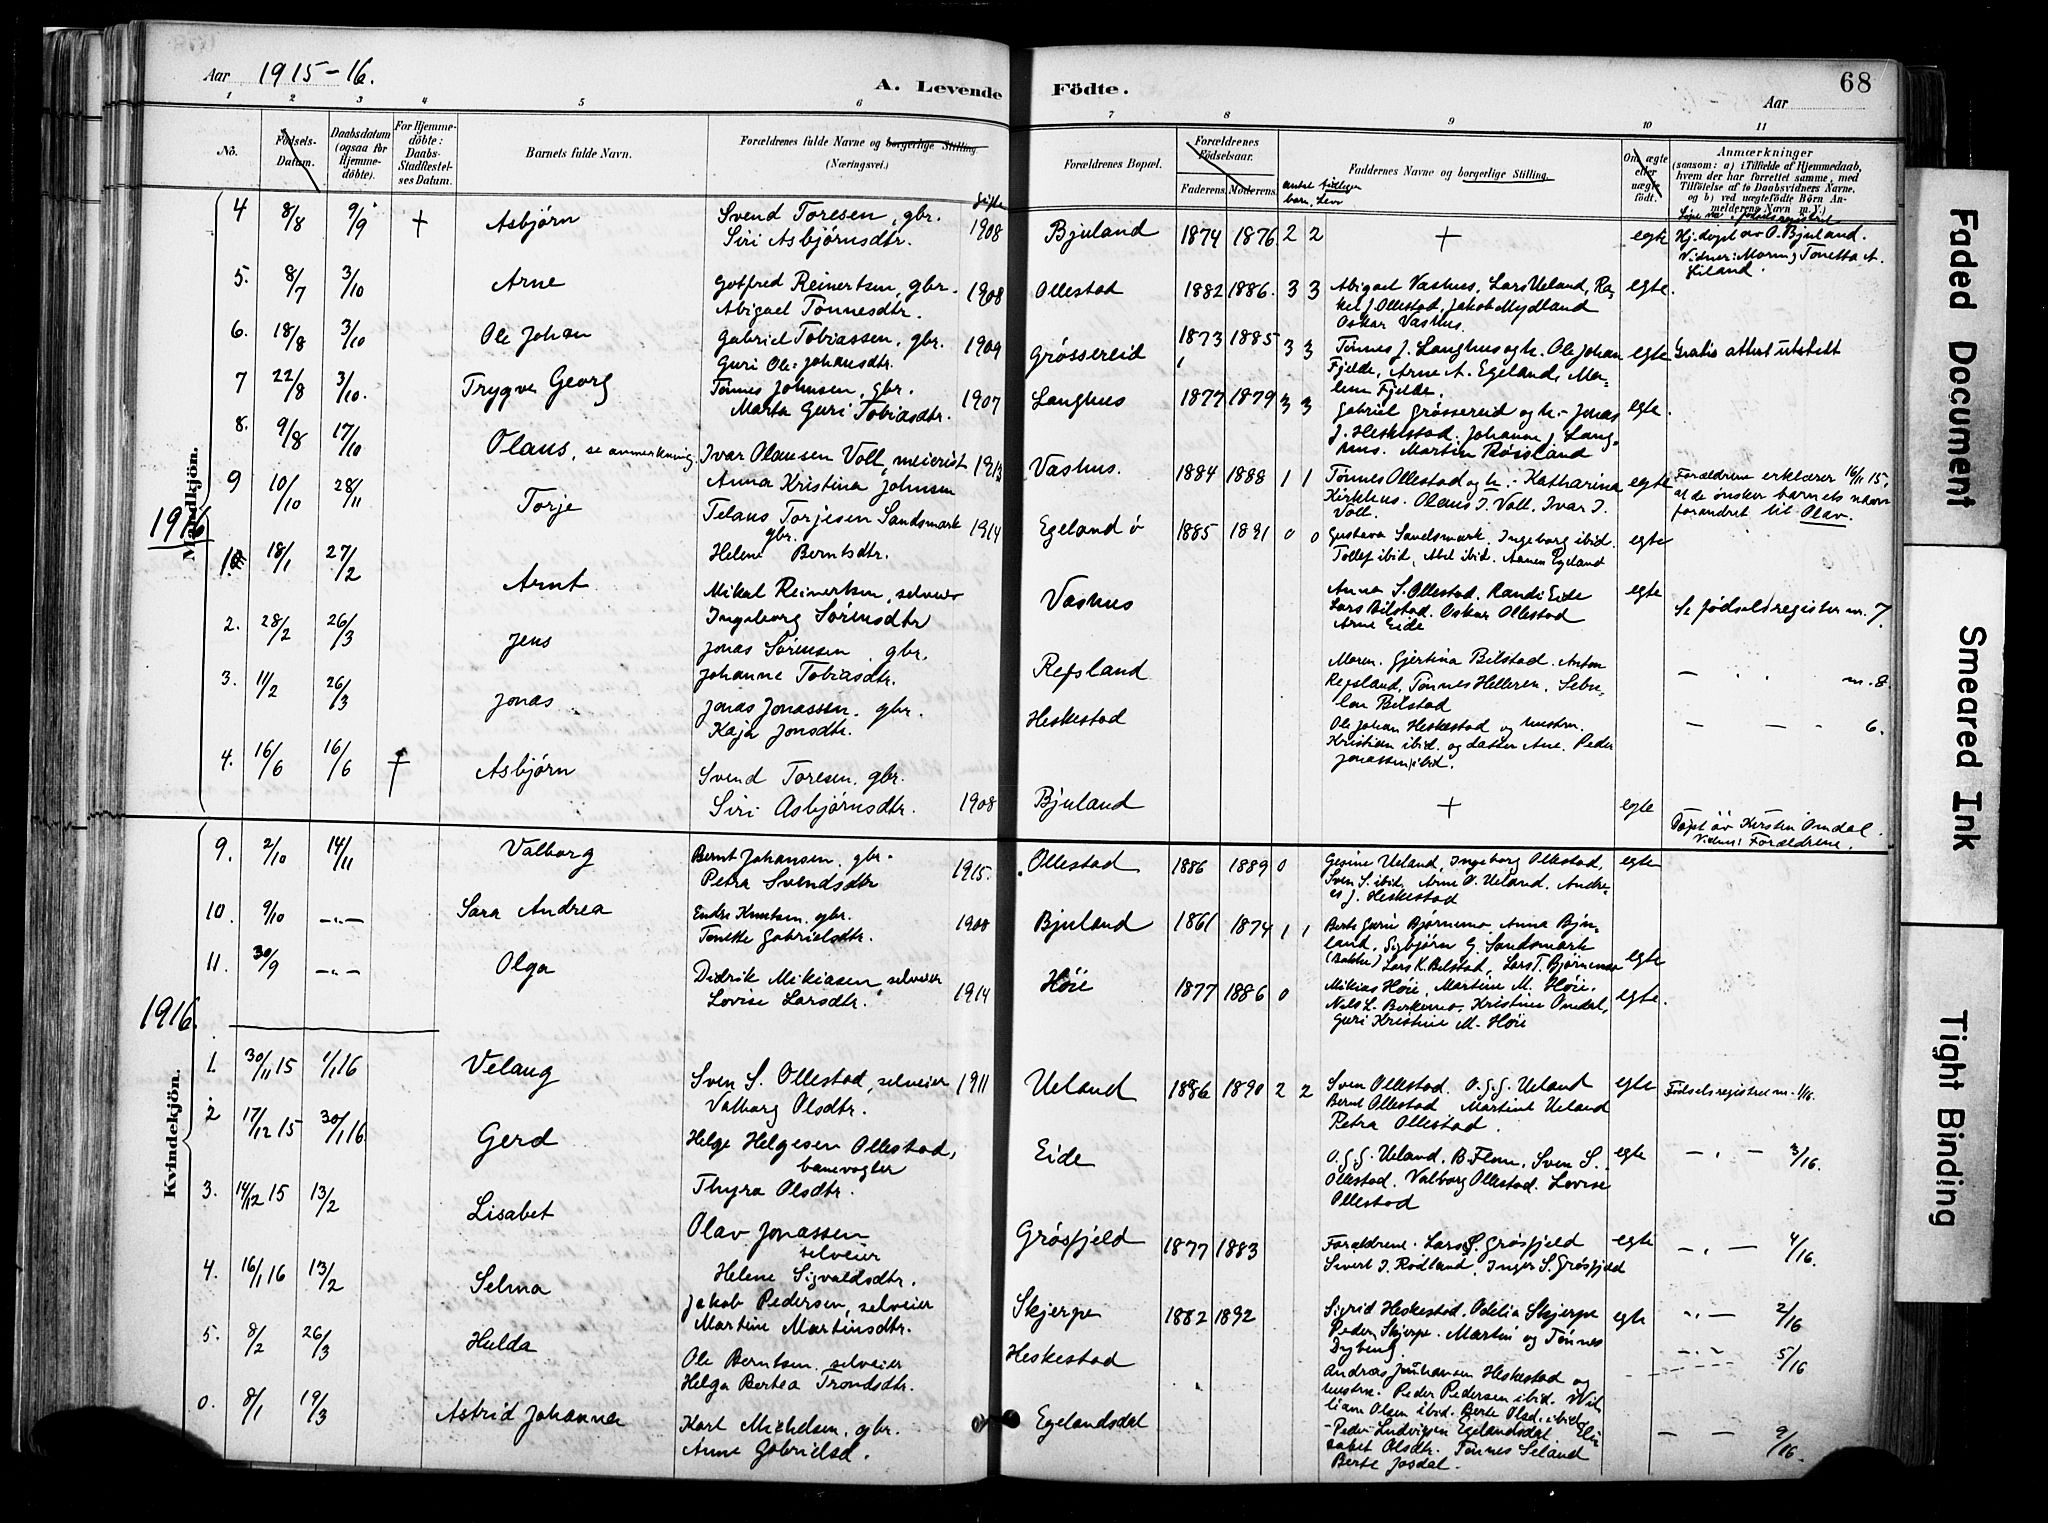 Aar 1915-16.
A. Levende Födte.
68
Aar
1 2 3 4 5 6 7 8 9 10 11
No.
Födsels-Datum.
Daabsdatum (ogsaa for Hjemme-döbte).
For Hjemme-döbte: Daabs-Stadfæstel-ses Datum.
Barnets fulde Navn.
Forældrenes fulde Navne og borgerlige Stilling (Næringsvei.)
gifte
Forældrenes Bopæl.
Forældrenes Födselsaar.
Faderens. Moderens.
antal barn,
Faddernes Navne og borgerlige Stilling.
Om ægte eller uægte födt.
Anmærkninger
(saasom: a) i Tilfælde af Hjemmedaab, hvem der har forrettet samme, med Tilföielse af to Daabsvidners Navne, og b) ved uægtefödte Börn An-melderens Navn m. V.)
Mandkjön.
4 8/8 9/9 + Asbjörn Svend Toresen, gbr. Siri Asbjörnsdtr. 1908 Bjuland 1874 1876 2 2 + egte Hj.døpt av O. Bjuland. Vidner: Maring Tonetta A. Liland.
5. 8/7 3/10 Arne Gotfred Reinertsen, gbr. Abigael Tönnesdtr. 1908 Ollestad 1882 1886. 3 3 Abigael Vashus, Lars Ueland, Ra-kel J. Ollestad, Jakob Mydland Oskar Vashus. egte.
6. 18/8 3/10 Ole Johan Gabriel Tobiassen, gbr. Guri Ole-Johansdtr. 1909 Gróssereid 1873 1885 3 3 Tönnes J. Langhus og h. Ole Johan Fjelde, Arne A. Egeland, Ma-lene Fjelde. egte Gratis attest utstedt
7 22/8 3/10. Trygve Georg Tönnes Johnsen, gbr. Marta Guri Tobiasdtr. 1907 Langhus 1877 1879 3 3 Gabriel Gróssereid og h. - Jonas J. Heskestad. Johanne J. Lang-hus. Martin Røisland egte.
8. 9/8 17/10 Olaus, se anmerkning Ivar Olausen Voll, meierist Anna Kristina Johnsen 1913 Vashus. 1884 1888 1 1 Tönnes Ollestad og h. - Katharina Kirkhus. Olaus I. Voll. Ivar I. Voll. egte Forældrene erklærer 16/11 15, at de ønsker barnets navn forandret til Olav.
9 10/10 28/11 Torje Telaus Torjesen Sandsmark gbr. Helene Berntsdtr. 1914 Egeland ö 1885 1891 0 0 Gustava Sandsmark, Ingeborg ibid. Tollef ibid, Abel ibid. Aanen Egeland egte
1916
1. 18/1 27/2 Arnt Mikal Reinertsen, selveier Ingeborg Sörensdtr Vashus Anna S. Ollestad. Randi Eide Lars Bilstad. Oskar Ollestad Arne Eide egte Se fødselsregister nr. 7.
2. 28/2 26/3 Jens Jonas Sørensen, gbr. Johanne Tobiasdtr. Refsland Maren. Gjertina Bilstad. Anton Refsland, Tönnes Helleren. Bilstad — " nr. 8.
3. 11/2 26/3 Jonas Jonas Jonassen. gbr. Kaja Jonsdtr. Heskestad Ole Johan Heskestad og hustru. Kristian ibid. og datter Ane. Peder Jonassen ibid. — — " 6.
4. 16/6 16/6 † Asbjørn Svend Toresen. gbr. Siri Asbjørnsdtr. 1908 Bjuland + egte Døpt av Kersten Omdal. Vidner: Forældrene.
Kvindekjön.
9. 2/10 14/11 Valborg Bernt Johansen, gbr. Petra Svendsdtr 1915. Ollestad 1886 1889 0 Gesine Ueland, Ingeborg Ollestad, Sven S. ibid, Arne O. Ueland. Andre-as J. Heskestad egte
10. 9/10 —"— Sara Andrea Endre Knutsen, gbr. Tonette Gabrielsdtr. 1900 Bjuland 1861 1874 1 1 Berte Gurie Bjørnemo, Anna Bju-land, Sigbjørn G. Sandsmark (Bakke) Lars K. Bilstad, Lars T. Bjørnemo egte
11. 30/9 —"— Olga Didrik Mikiasen, selveier Lovise Larsdtr. 1914 Høie 1877 1886 0 Mikias Høie, Martine M. Høie. Nils L. Birkemo, Kristine Omdal, Guri Kristine M. Høie egte.
1916.
1. 30/11 15 1/1 16 Velaug Sven S. Ollestad, selveier Valborg Olsdtr. 1911 Ueland 1886 1890 2 2 Sven Ollestad. O.G.G. Ueland Bernt Ollestad Martine Ueland Petra Ollestad. egte Fødselsregistret nr. 1/16.
2 17/12 15 30/1 16. Gerd Helge Helgesen Ollestad, banevogter Thyra Olsdtr. Eide O.G.G. Ueland. B. Flom, Sven S. Ollestad. Valborg Ollestad. Lovise Ollestad egte — " — 3/16.
3. 14/12 15 13/2 Lisabet Olav Jonassen selveier Helene Sigvaldsdtr. Grösfjeld 1877 1883 Forældrene. Lars S. Grøsfjeld Sivert I. Rødland, Inger S. Grøsfjeld egte — " — 4/16.
4. 16/1 16 13/2 Selma Jakob Pedersen, selveier Martine Martinsdtr. Skjerpe 1882 1892 Sigrid Heskestad, Odelia Skjerpe Peder Skjerpe. Martin og Tönnes Dybing egte " — 2/16
5. 8/2 26/3 Hulda Ole Berntsen, selveier Helga Bertea Trondsdtr. Heskestad Andreas Heskestad og hustru. Peder Pedersen ibid. Wil-liam Olsen ibid. Berte Olsd. ibid. — " — 5/16
0. 8/1 19/3 Astrid Johanna Karl Michelsen, gbr. Anne Gabrielsd. Egelandsdal Peder Ludvigsen Egelandsdal Eli-sabet Olsdtr. Tönnes Seland Berte Josdal. — — 9/16.
Faded Document
Smeared Ink
Tight Binding